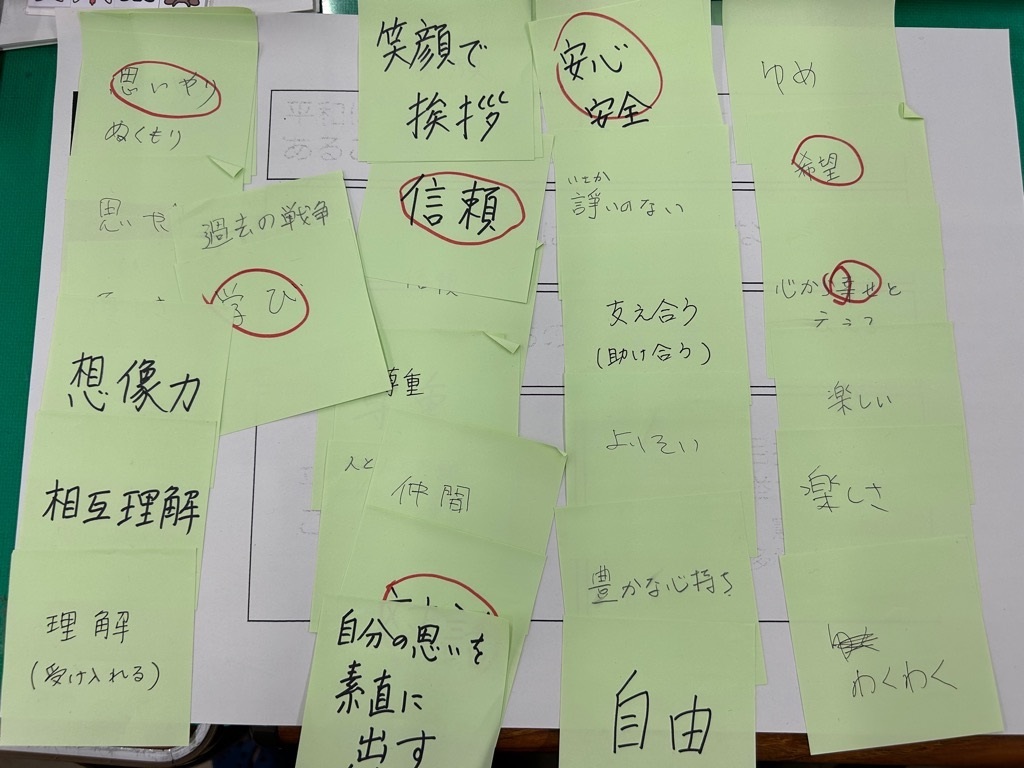 思いやり
ぬくもり
思いや
想像力
相互理解
理解
(受け入れる)
過去の戦争
学び
笑顔で
挨拶
信頼
尊重
人と
仲間
自分の思いを
素直に
出す
安心
安全
いさか
諍いのない
支え合う
(助け合う)
よりそい
豊かな心持ち
自由
ゆめ
希望
心から幸せと
楽しい
楽しさ
わくわく
平和
ある